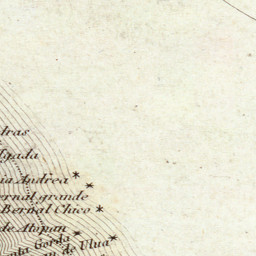 dras
lgada
ia Andrea
ernal grande
Bernal Chico
de Atopan
nta Gorda
n de Ulua